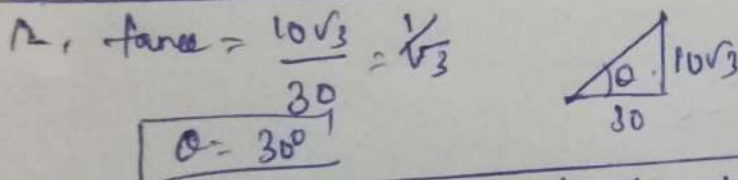 tanθ = 10√3 / 30 = 1/√3
θ = 30°
θ
10√3
30